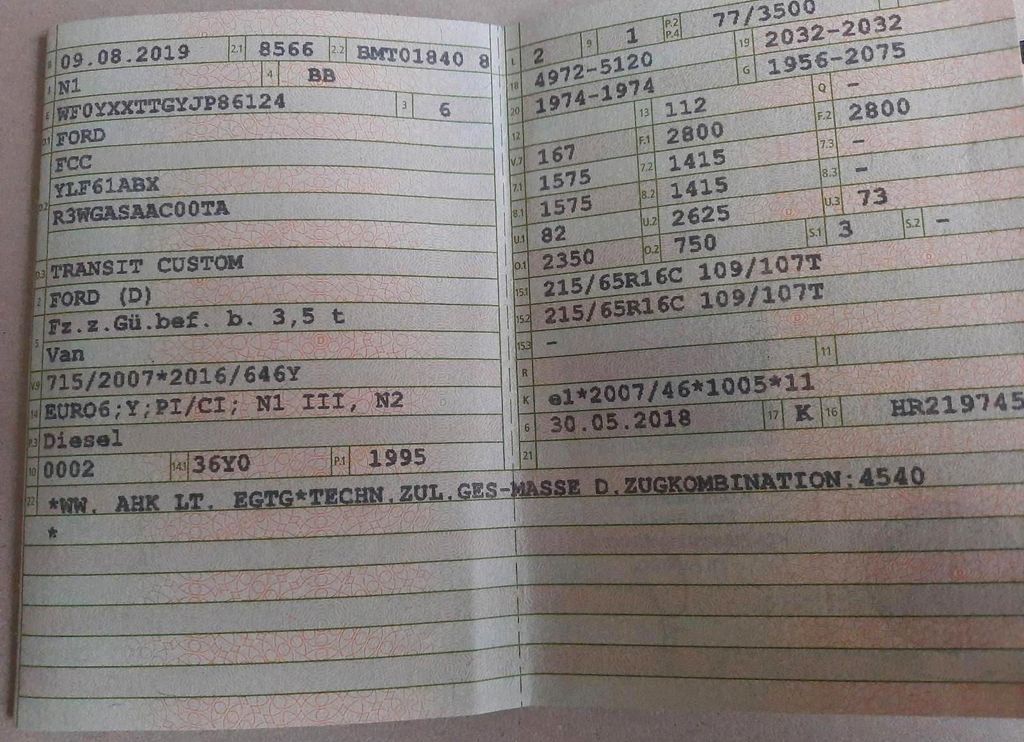 B 09.08.2019 2.1 8566 2.2 BMT01840 8
J N1 4 BB
E WF0YXXTTGYJP86124 3 6
D.1 FORD
FCC
D.2 YLF61ABX
R3WGASAAC00TA
D.3 TRANSIT CUSTOM
2 FORD (D)
5 Fz.z.Gü.bef. b. 3,5 t
Van
V.9 715/2007*2016/646Y
14 EURO6;Y;PI/CI; N1 III, N2
P.3 Diesel
10 0002 14.1 36Y0 P.1 1995
L 2 9 1 P.2 P.4 77/3500
18 4972-5120 19 2032-2032
20 1974-1974 G 1956-2075
12 13 112 Q -
V.7 167 F.1 2800 F.2 2800
7.1 1575 7.2 1415 7.3 -
8.1 1575 8.2 1415 8.3 -
U.1 82 U.2 2625 U.3 73
O.1 2350 O.2 750 S.1 3 S.2 -
15.1 215/65R16C 109/107T
15.2 215/65R16C 109/107T
15.3 -
R 11
K e1*2007/46*1005*11
6 30.05.2018 17 K 16 HR219745
21
22 *WW. AHK LT. EGTG*TECHN.ZUL.GES-MASSE D.ZUGKOMBINATION:4540
*